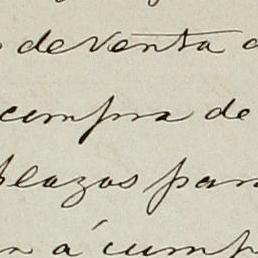 de venta
compra de
plazos para
á cump